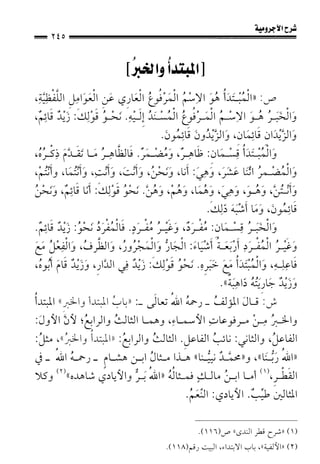 شرح الآجرومية
٢٤٥
[المبتدأُ والخبرُ]
ص: «الْمُبْتَدَأُ هُوَ الِاسْمُ الْمَرْفُوعُ الْعَارِي عَنِ الْعَوَامِلِ اللَّفْظِيَّةِ،
وَالْخَبَرُ هُوَ الِاسْمُ الْمَرْفُوعُ الْمُسْنَدُ إِلَيْهِ. نَحْوُ قَوْلِكَ: زَيْدٌ قَائِمٌ،
وَالزَّيْدَانِ قَائِمَانِ، وَالزَّيْدُونَ قَائِمُونَ.
وَالْمُبْتَدَأُ قِسْمَانِ: ظَاهِرٌ، وَمُضْمَرٌ. فَالظَّاهِرُ مَا تَقَدَّمَ ذِكْرُهُ،
وَالْمُضْمَرُ اثْنَا عَشَرَ، وَهِيَ: أَنَا، وَنَحْنُ، وَأَنْتَ، وَأَنْتِ، وَأَنْتُمَا، وَأَنْتُمْ،
وَأَنْتُنَّ، وَهُوَ، وَهِيَ، وَهُمَا، وَهُمْ، وَهُنَّ. نَحْوُ قَوْلِكَ: أَنَا قَائِمٌ، وَنَحْنُ
قَائِمُونَ، وَمَا أَشْبَهَ ذَلِكَ.
وَالْخَبَرُ قِسْمَانِ: مُفْرَدٌ، وَغَيْرُ مُفْرَدٍ. فَالْمُفْرَدُ نَحْوُ: زَيْدٌ قَائِمٌ.
وَغَيْرُ الْمُفْرَدِ أَرْبَعَةُ أَشْيَاءَ: الْجَارُّ وَالْمَجْرُورُ، وَالظَّرْفُ، وَالْفِعْلُ مَعَ
فَاعِلِهِ، وَالْمُبْتَدَأُ مَعَ خَبَرِهِ. نَحْوُ قَوْلِكَ: زَيْدٌ فِي الدَّارِ، وَزَيْدٌ قَامَ أَبُوهُ،
وَزَيْدٌ جَارِيَتُهُ ذَاهِبَةٌ».
ش: قـال المؤلفُ ـ رحمهُ اللهُ تعالَى ـ: «بابُ المبتدأِ والخبرِ» المبتدأُ
والخـبرُ مِـنْ مـرفوعاتِ الأسمـاءِ، وهمـا الثالـثُ والرابـعُ؛ لأنَّ الأولَ:
الفاعلُ، والثاني: نائبُ الفاعلِ. الثالثُ والرابعُ: «المبتدأُ والخبرُ»، مثلُ:
«اللهُ رَبُّنَا»، «ومحمَّـدٌ نبيُّـنا» هـذا مـثالُ ابـنِ هشـامٍ ـ رحمـهُ اللهُ ـ في
القَطْـرِ(١) أمـا ابـنُ مالـكٍ فمـثالُهُ «اللهُ بَـرٌّ والأيادي شاهده»(٢) وكلا
المثالينَ طيِّبٌ. الأيادي: النِّعَمُ.
(١) «شرح قطر الندى» ص(١١٦).
(٢) «الألفية»، باب الابتداء، البيت رقم(١١٨).